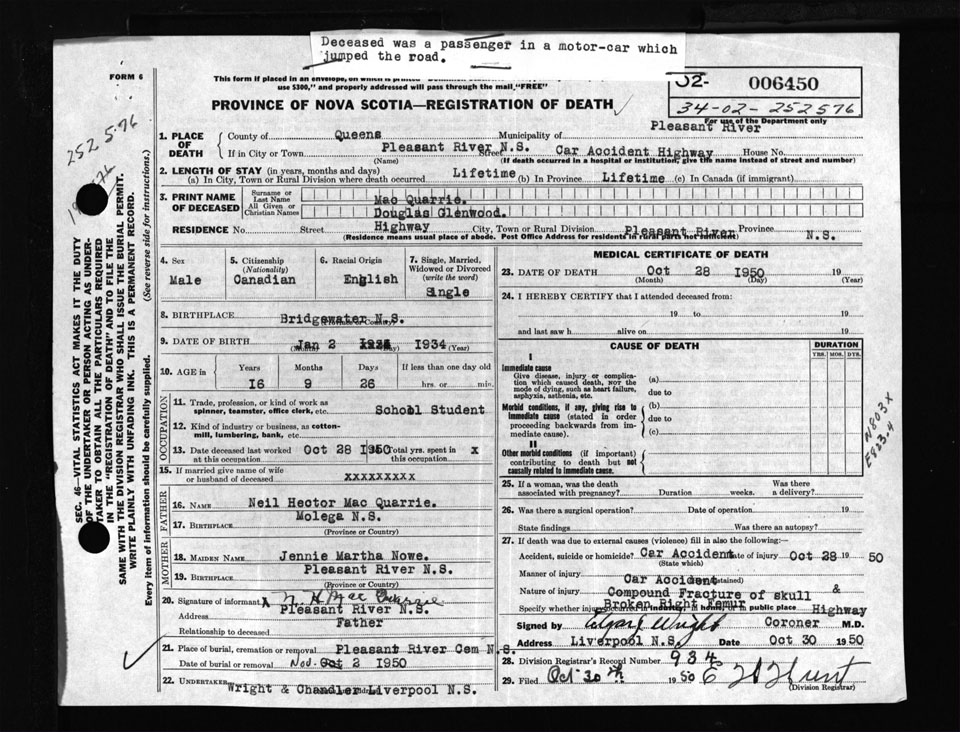 Deceased was a passenger in a motor-car which
jumped the road.
FORM 6
This form if placed in an envelope, on which is printed
use $300," and properly addressed will pass through the mail, "FREE"
006450
34-02-252576
For use of the Department only
PROVINCE OF NOVA SCOTIA—REGISTRATION OF DEATH
252576
1. PLACE OF DEATH
County of Queens Municipality of Pleasant River
If in City or Town Pleasant River N.S. Street Car Accident Highway House No.
(Name) (If death occurred in a hospital or institution, give the name instead of street and number)
2. LENGTH OF STAY (in years, months and days)
(a) In City, Town or Rural Division where death occurred Lifetime (b) In Province Lifetime (c) In Canada (if immigrant)
3. PRINT NAME OF DECEASED
Surname or Last Name Mac Quarrie.
All Given or Christian Names Douglas Glenwood.
RESIDENCE No. Street Highway City, Town or Rural Division Pleasant River Province N.S.
(Residence means usual place of abode. Post Office Address for residents in rural parts not sufficient)
4. Sex Male
5. Citizenship (Nationality) Canadian
6. Racial Origin English
7. Single, Married, Widowed or Divorced (write the word) Single
8. BIRTHPLACE Bridgewater N.S.
(Province or Country)
9. DATE OF BIRTH Jan 2 1934
(Month) (Day) (Year)
10. AGE in Years Months Days If less than one day old
16 9 26 hrs. or min.
OCCUPATION
11. Trade, profession, or kind of work as
spinner, teamster, office clerk, etc. School Student
12. Kind of industry or business, as cotton-
mill, lumbering, bank, etc.
13. Date deceased last worked at this occupation Oct 28 1950 Total yrs. spent in this occupation x
15. If married give name of wife
or husband of deceased xxxxxxxxx
FATHER
16. NAME Neil Hector Mac Quarrie.
17. BIRTHPLACE Molega N.S.
(Province or Country)
MOTHER
18. MAIDEN NAME Jennie Martha Nowe.
19. BIRTHPLACE Pleasant River N.S.
(Province or Country)
20. Signature of informant X N H Mac Quarrie
Address Pleasant River N.S.
Relationship to deceased Father
21. Place of burial, cremation or removal Pleasant River Cem N.S.
Date of burial or removal Nov. Oct 2 1950
22. UNDERTAKER Wright & Chandler Liverpool N.S.
MEDICAL CERTIFICATE OF DEATH
23. DATE OF DEATH Oct 28 1950 19
(Month) (Day) (Year)
24. I HEREBY CERTIFY that I attended deceased from:
19 to 19
and last saw h alive on 19
CAUSE OF DEATH DURATION
YRS. MOS. DYS.
I
Immediate cause
Give disease, injury or complica-
tion which caused death, NOT the
mode of dying, such as heart failure,
asphyxia, asthenia, etc.
(a)
due to
Morbid conditions, if any, giving rise to
immediate cause (stated in order
proceeding backwards from im-
mediate cause).
(b)
due to
(c)
II
Other morbid conditions (if important)
contributing to death but not
causally related to immediate cause.
N803X
E823.4
25. If a woman, was the death associated with pregnancy? Duration weeks. Was there a delivery?
26. Was there a surgical operation? Date of operation 19
State findings Was there an autopsy?
27. If death was due to external causes (violence) fill in also the following:—
Accident, suicide or homicide? Car Accident Date of injury Oct 28 19 50
(State which)
Manner of injury Car Accident
Nature of injury Compound Fracture of skull &
Broken Right Femur
Specify whether injury occurred in industry, in home, or in public place Highway
Signed by Wright Coroner M.D.
Address Liverpool N.S. Date Oct 30 1950
28. Division Registrar's Record Number 934
29. Filed Oct 30th 1950 E H Hunt
(Division Registrar)
SEC. 46—VITAL STATISTICS ACT MAKES IT THE DUTY
OF THE UNDERTAKER OR PERSON ACTING AS UNDER-
TAKER TO OBTAIN ALL THE PARTICULARS REQUIRED
IN THE "REGISTRATION OF DEATH" AND TO FILE THE
SAME WITH THE DIVISION REGISTRAR WHO SHALL ISSUE THE BURIAL PERMIT.
WRITE PLAINLY WITH UNFADING INK. THIS IS A PERMANENT RECORD.
Every item of information should be carefully supplied. (See reverse side for instructions.)